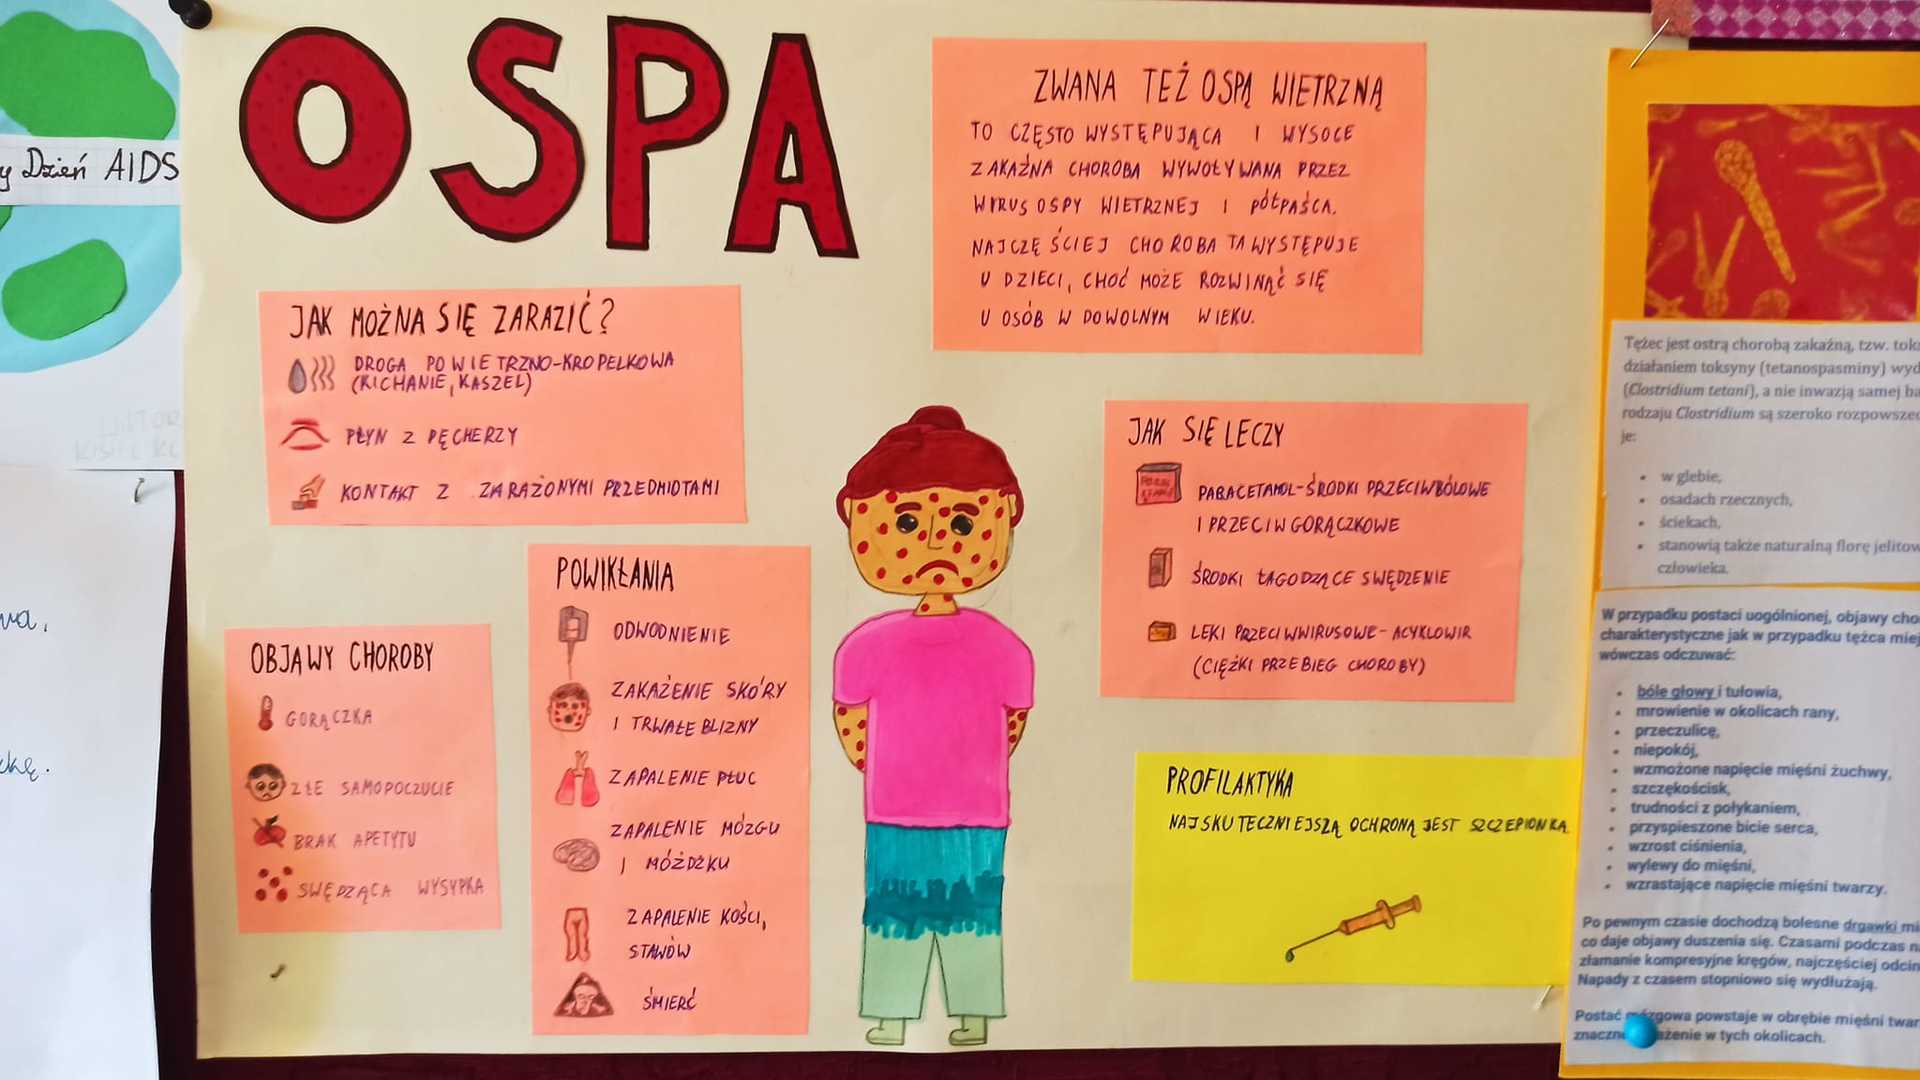 OSPA
ZWANA TEŻ OSPĄ WIETRZNĄ
TO CZĘSTO WYSTĘPUJĄCA I WYSOCE
ZAKAŹNA CHOROBA WYWOŁYWANA PRZEZ
WIRUS OSPY WIETRZNEJ I PÓŁPAŚCA.
NAJCZĘŚCIEJ CHOROBA TA WYSTĘPUJE
U DZIECI, CHOĆ MOŻE ROZWINĄĆ SIĘ
U OSÓB W DOWOLNYM WIEKU.
JAK MOŻNA SIĘ ZARAZIĆ?
DROGA POWIETRZNO-KROPELKOWA
(KICHANIE, KASZEL)
PŁYN Z PĘCHERZY
KONTAKT Z ZARAŻONYMI PRZEDMIOTAMI
OBJAWY CHOROBY
GORĄCZKA
ZŁE SAMOPOCZUCIE
BRAK APETYTU
SWĘDZĄCA WYSYPKA
POWIKŁANIA
ODWODNIENIE
ZAKAŻENIE SKÓRY
I TRWAŁE BLIZNY
ZAPALENIE PŁUC
ZAPALENIE MÓZGU
I MÓŻDŻKU
ZAPALENIE KOŚCI,
STAWÓW
ŚMIERĆ
JAK SIĘ LECZY
PARACETAMOL-ŚRODKI PRZECIWBÓLOWE
I PRZECIWGORĄCZKOWE
ŚRODKI ŁAGODZĄCE SWĘDZENIE
LEKI PRZECIWWIRUSOWE-ACYKLOWIR
(CIĘŻKI PRZEBIEG CHOROBY)
PROFILAKTYKA
NAJSKUTECZNIEJSZĄ OCHRONĄ JEST SZCZEPIONKA
y Dzień AIDS
Tężec jest ostrą chorobą zakaźną, tzw. tok
działaniem toksyny (tetanospasminy) wyd
(Clostridium tetani), a nie inwazją samej ba
rodzaju Clostridium są szeroko rozpowszec
je:
• w glebie,
• osadach rzecznych,
• ściekach,
• stanowią także naturalną florę jelitow
człowieka.
W przypadku postaci uogólnionej, objawy cho
charakterystyczne jak w przypadku tężca miej
wówczas odczuwać:
• bóle głowy i tułowia,
• mrowienie w okolicach rany,
• przeczulicę,
• niepokój,
• wzmożone napięcie mięśni żuchwy,
• szczękościsk,
• trudności z połykaniem,
• przyspieszone bicie serca,
• wzrost ciśnienia,
• wylewy do mięśni,
• wzrastające napięcie mięśni twarzy.
Po pewnym czasie dochodzą bolesne drgawki mi
co daje objawy duszenia się. Czasami podczas n
złamanie kompresyjne kręgów, najczęściej odcin
Napady z czasem stopniowo się wydłużają.
Postać mózgowa powstaje w obrębie mięśni twar
znaczn ażenie w tych okolicach.